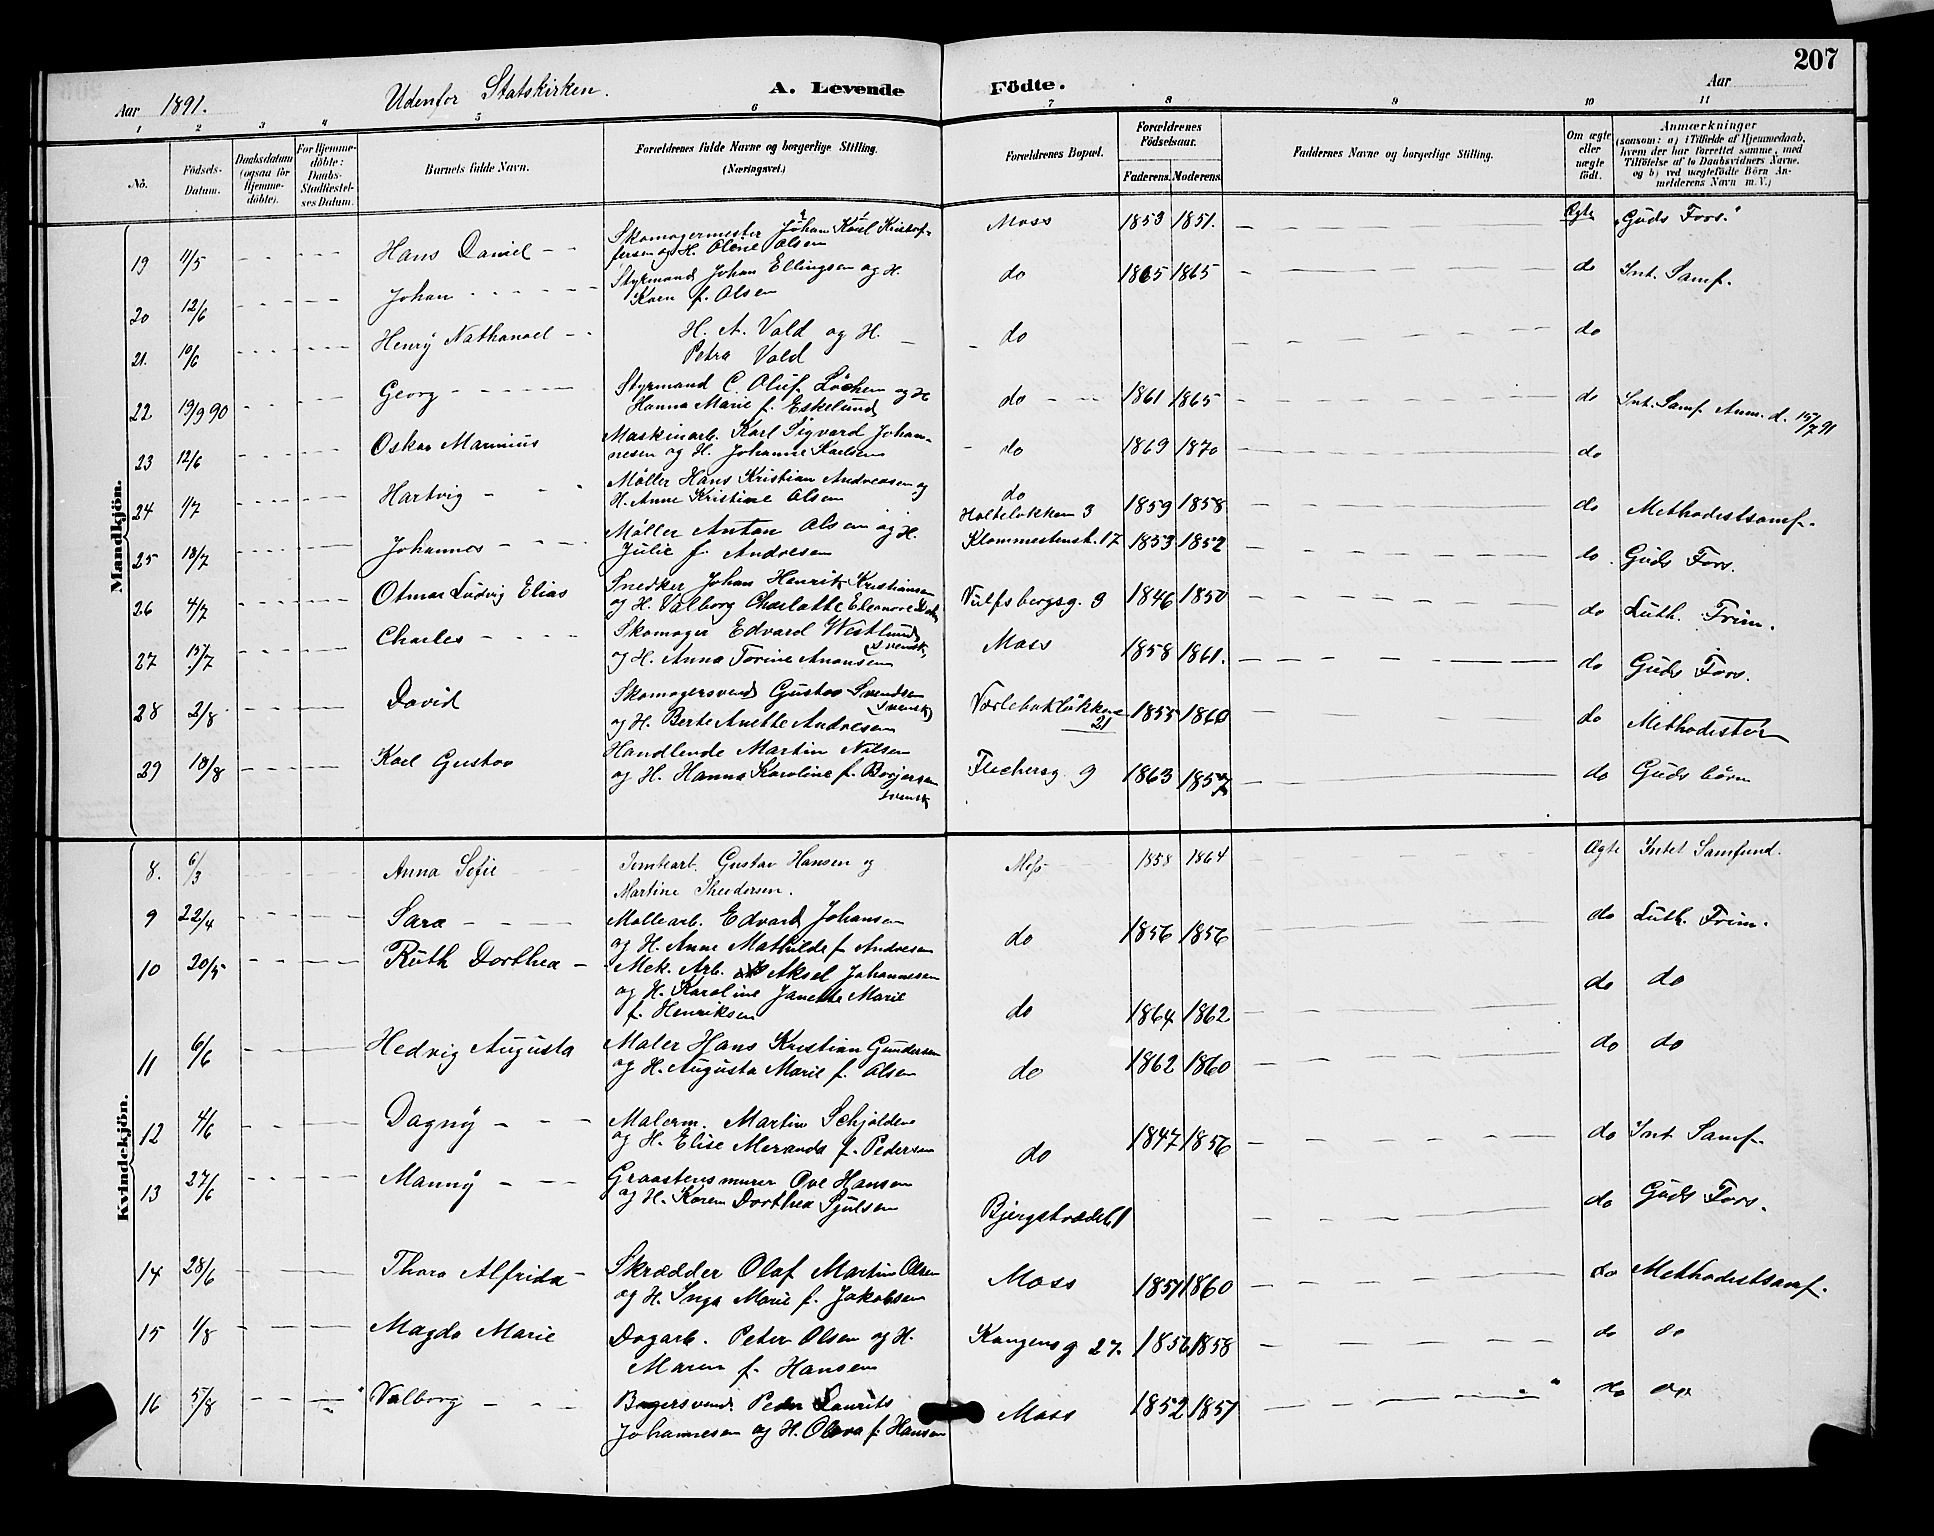 207
Aar 1891. Udenfor Statskirken. A. Levende Födte. Aar
1 2 3 4 5 6 7 8 9 10 11
No. Födsels-Datum. Daabsdatum (ogsaa för Hjemmedöbte). For Hjemmedöbte: Daabs-Stadfæstelses Datum. Barnets fulde Navn. Forældrenes fulde Navne og borgerlige Stilling. (Næringsvei.) Forældrenes Bopæl. Forældrenes Födselsaar. Faderens. Moderens. Faddernes Navne og borgerlige Stilling. Om ægte eller uægte födt. Anmærkninger (saasom: a) i Tilfælde af Hjemmedaab, hvem der har forrettet samme, med Tilföielse af to Daabsvidners Navne, og b) ved uægtefödte Börn Anmelderens Navn m. V.)
Mandkjön.
19 11/5 Hans Daniel Skomagermester Johan Karl Kristof- Moss 1853 1851. Ægte "Guds Fors."
fersen og H. Oline Olsen
20 12/6 Johan Styrmand Johan Ellingsen og H. do 1865 1865 do Int. Samf.
Karn f. Olsen
21. 10/6 Henry Nathanael H. A. Vold og H. do do
Petra Vold
22 19/9 90 Georg Styrmand C. Oluf Löchen og H do 1861 1865 do Int. Samf Anm. d. 15/7 91
Hanna Marie f. Eskelund
23 12/6 Oskar Marinius Maskinarb. Karl Sigvard Johan- do 1869 1870 do
nesen og H. Johanne Karlsen
24 1/7 Hartvig Møller Hans Kristian Andreasen og do 1859 1858 do Methodistsamf.
H. Anne Kristine Olsen Holteløkken 3
25 18/7 Johannes Møller Anton Olsen og H. Klommestenst. 17 1853 1852 do Guds Fors.
Julie f. Andresen
26 4/7 Otmar Ludvig Elias Snedker Johan Henrik Kristiansen Vulfsbergsg. 9 1846 1850 do Luth. Frim.
og H. Valborg Charlotte Eleonore
27 15/7 Charles Skomager Edvard Westlund Moss 1858 1861. do Guds Fors.
(svensk)
og H. Anna Torine Anonsen
28 2/8 David Skomagersvend Gustav Svendsen Vørlebakløkkene 21 1855 1860 do Methodister
(svensk)
og H. Berte Anette Andresen
29 18/8 Karl Gustav Handlende Martin Nilsen Flechersg. 9 1863 1857 do Guds börn
og H. Hanna Karoline f. Borjersen
svensk
Kvindekjön.
8. 6/3 Anna Sofie Tomtearb. Gustav Hansen og Moss 1858 1864 Ægte Intet Samfund.
Martine Theodorsen.
9 22/4 Sara Møllearb. Edvard Johansen do 1856 1856 do Luth. Frim.
og H. Anne Mathilde f. Andresen
10 20/5 Ruth Dorthea Mek. Arb. Aksel Johannesen do 1864 1862 do do
og H. Karoline Janette Marie
f. Henriksen
11 6/6 Hedvig Augusta Maler Hans Kristian Gundersen do 1862 1860 do do
og H. Augusta Marie f. Olsen
12 4/6 Dagny Malerm. Martin Schjoldene do 1847 1856 do Int. Samf
og H. Elise Meranda f. Pedersen
13 27/6 Manny Graastensmurer Ove Hansen Bjergstrædet 1 do Guds Fors.
og H. Karen Dorthea Sjulsen
14 28/6 Thora Alfrida Skrædder Olaf Martin Olsen Moss 1851 1860 do Methodistsamf.
og H. Inga Marie f. Jakobsen
15 1/8 Magda Marie Dagarb. Peter Olsen og H. Kongensg 27. 1856 1858 do do
Maren f. Hansen
16 5/8 Valborg Bagersvend. Peder Laurits Moss 1852 1851 do do
Johannesen og H. Olava f. Hansen